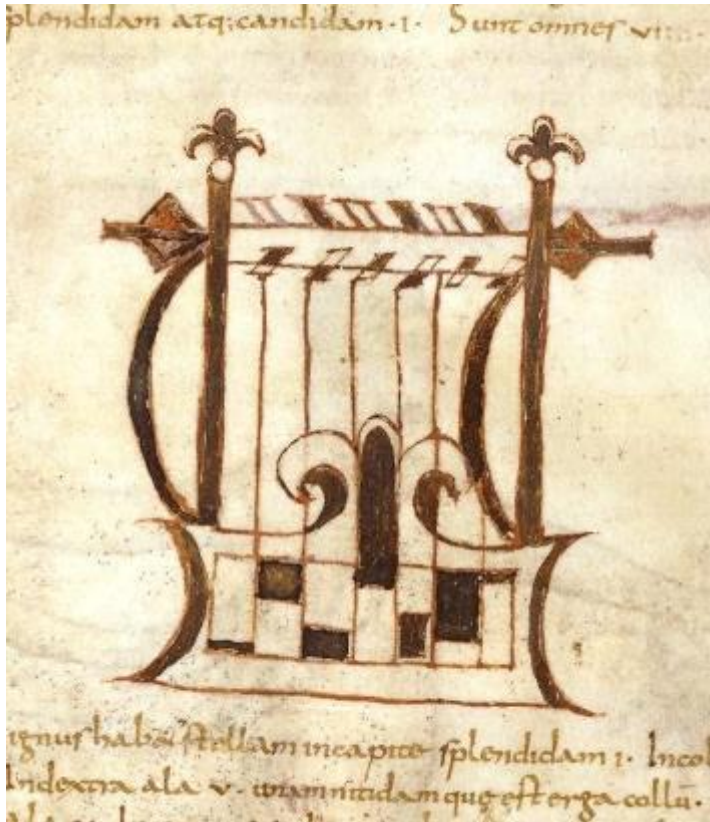 splendidam atq; candidam · I · Sunt omnes
ignus habet stellam in capite splendidam I · Incol
In dextra ala v · unam nitidam que est erga collū ·